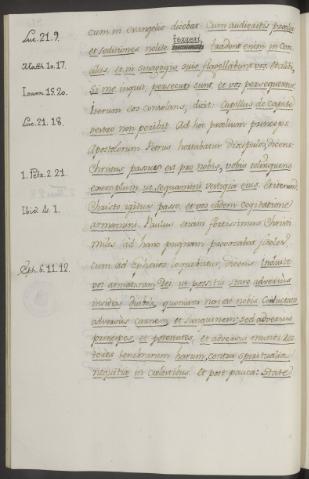 Luc. 21. 9.
Matth. 10. 17.
Ioann. 15. 20.
Luc. 21. 18.
1. Petr. 2. 21
Ibid. 4. 1.
Eph. 6. 11. 12.
cum in evangelio dicebat: Cum audieritis proelia
et seditiones nolite terreri, tradent enim in con-
ciliis, et in synagogis suis flagellabunt vos. Et alibi,
Si me, inquit, persecuti sunt et vos persequentur.
Iterum eos consolans, dicit: Capillus de capite
vestro non peribit. Ad hoc proelium princeps
Apostolorum Petrus hortabatur discipulos, dicens:
Christus passus est pro nobis, vobis relinquens
exemplum ut sequamini vestigia eius. Et iterum
Christo igitur passo, et vos eadem cogitatione
armamini. Paulus etiam fortissimus Christi
miles ad hanc pugnam
cum ad Ephesios loquebatur, dicens: Induite
vos armaturam Dei ut possitis stare adversus
insidias diaboli, quoniam non est nobis Colluctatio
adversus carnem, et sanguinem; sed adversus
principes, et potestates, et adversus mundi rec-
tores tenebrarum harum, contra spiritualia
nequitiae in coelestibus. et post pauca: State